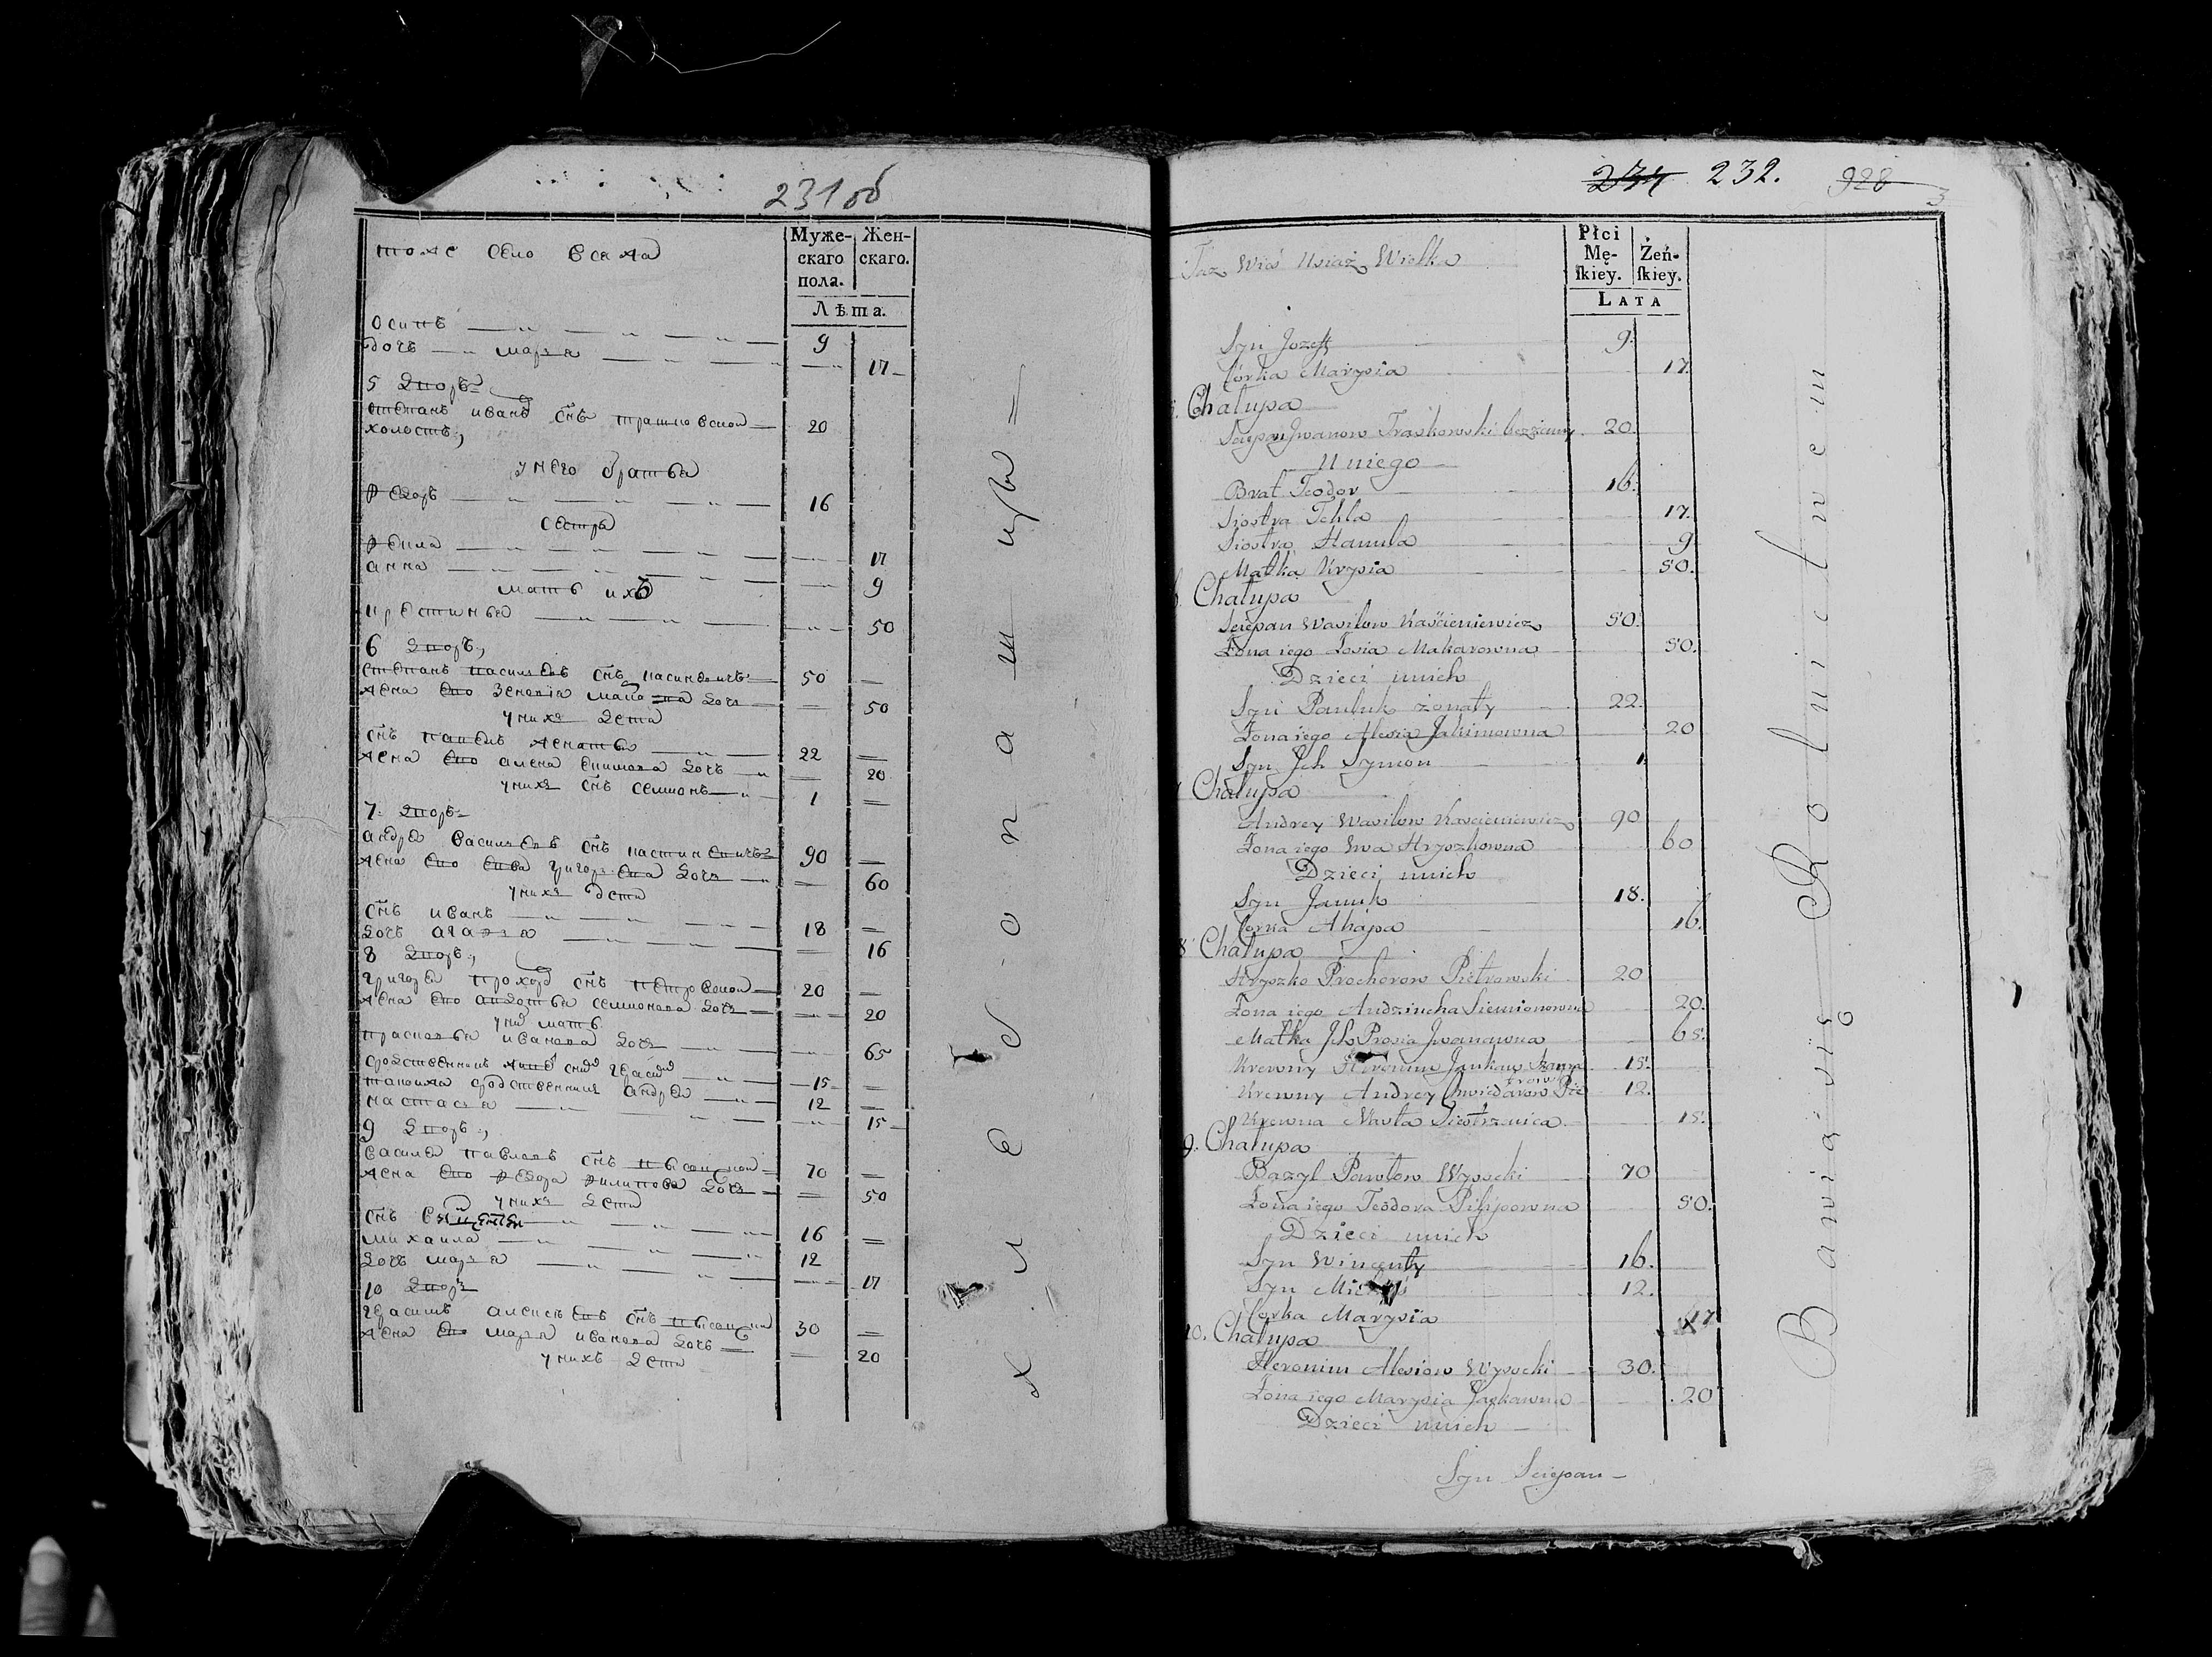 231 об
тоже село Усяжа
Муже-
скаго
пола.
Жен-
скаго.
Лѣта.
Осипъ 9
дочь марья 17
5 Дворъ
степанъ иванов снъ трашковской 20
холостъ,
у него братья
Федоръ 16
сестры
Фекла 17
анна 9
мать ихъ
крестинья 50
6 Дворъ,
степанъ васильевъ снъ 50
жена его зеновія дочь 50
у них дети
снъ павелъ женатъ 22
жена его алена екимова дочь 20
у них снъ семионъ 1
7 Дворъ
андрей васильевъ снъ 90
жена его ева григорьева дочь 60
у них дети
снъ иванъ 18
дочь агапья 16
8 Дворъ,
григорей прохоров снъ петровской 20
жена его авдотья семионова дочь 20
мать
прасковья иванова дочь 65
15
родственникъ андрей 12
настасья 15
9 Дворъ,
василей павловъ снъ высоцкой 70
жена его Федора Филипова дочь 50
у них дети
снъ 16
михаила 12
дочь марья 17
10 Дворъ
герасимъ алексеевъ снъ высоцкий 30
жена его марья иванова дочь 20
у нихъ дети
хлебопашцы
232. 928
Taż Wieś Usiaż Wielka
Płci
Mę-
skiey.
Żeń-
skiey.
LATA
Syn Jozeff 9.
Córka Marysia 17.
Chałupa
Sciepan Jwanow Traskowski bezżenny 20.
U niego
Brat Teodor 16.
Siostra Tekla 17.
Siostra Hanula 9
Matka Krysia 50.
Chałupa
Sciepan Wasilow Kaścieniewicz 50.
Zona iego Zosia Makarowna 50.
Dzieci unich
Syn Pauluk żonaty 22.
Zona iego Alesia Jakimowna 20
Syn Jch Symon 1
Chałupa
Andrey Wasilow Kascieniewicz 90
Zona iego Ewa Hryszkowna 60
Dzieci unich
Syn Januk 18.
Corka Ahapa 16.
8 Chałupa
Hryszko Prochorow Pietrowski 20
Zona iego Audziucha Siemionowna 20.
Matka Jch Prosia Jwanowna 65.
Krewny Heronim Jankow 15.
Krewny Andrey 12.
Krewna Nasta Siostrznica 15.
9. Chałupa
Bazyl Pawłow Wysocki 70
Zona iego Teodora Pilipowna 50.
Dzieci unich
Syn Wincenty 16.
Syn 12.
Corka Marysia 17
10. Chałupa
Heronim Alesiow Wysocki 30.
Zona iego Marysia Jaskawna 20
Dzieci unich
Syn Sciepan
Bawią się Rolnictwem